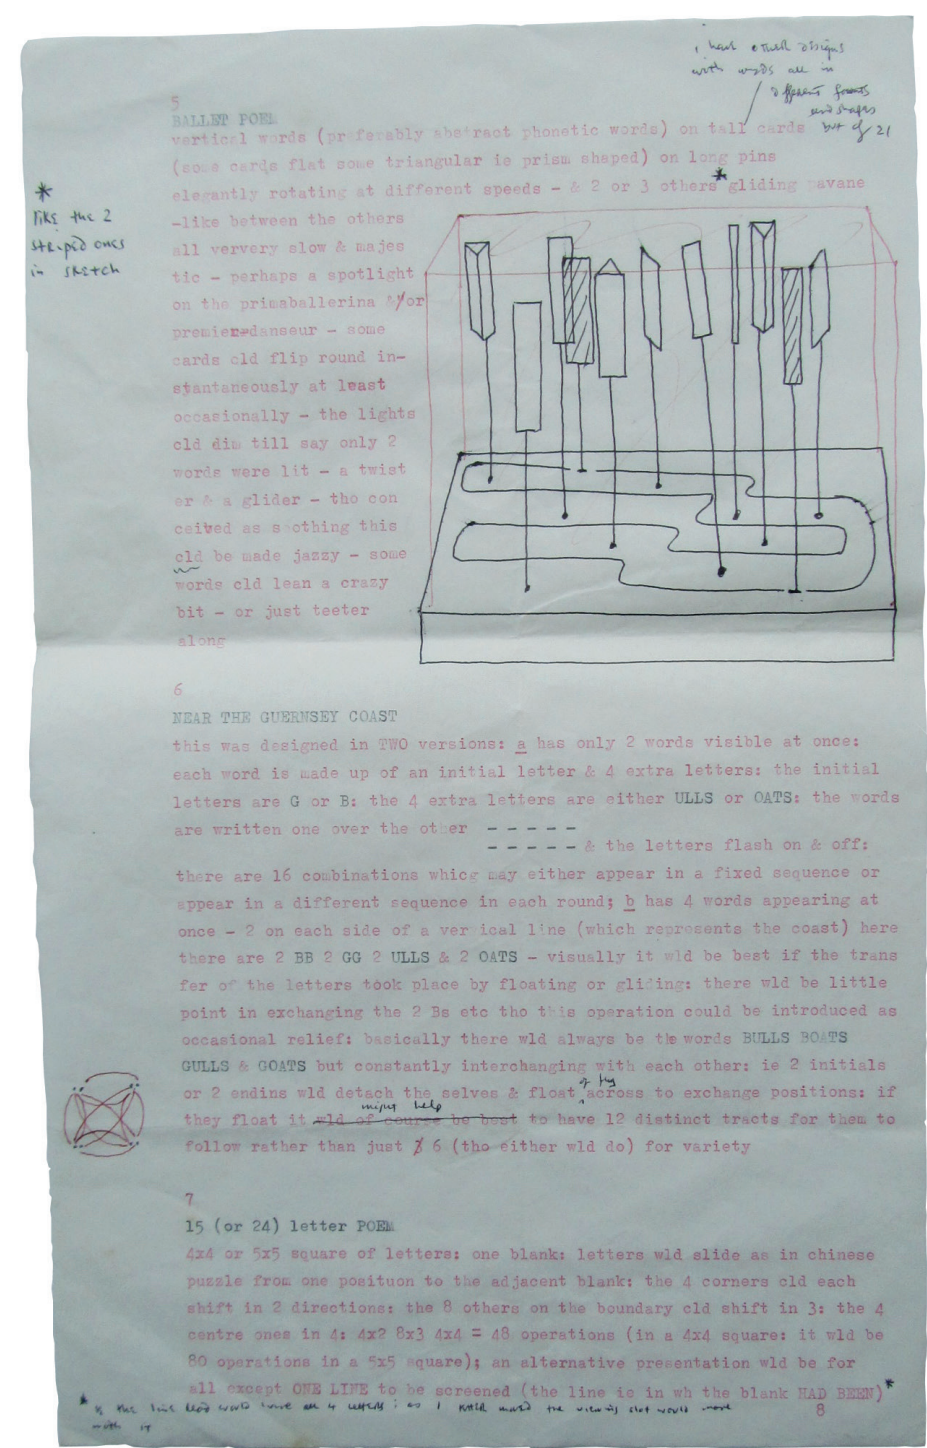 i have other designs
with words all in
different fonts
and shapes
but of 21
5
BALLET POEM
vertical words (preferably abstract phonetic words) on tall cards
(some cards flat some triangular ie prism shaped) on long pins
elegantly rotating at different speeds - & 2 or 3 others* gliding pavane
*
like the 2
striped ones
in sketch
-like between the others
all ververy slow & majes
tic - perhaps a spotlight
on the primaballerina &/or
premier-danseur - some
cards cld flip round in-
stantaneously at least
occasionally - the lights
cld dim till say only 2
words were lit - a twist
er & a glider - tho con
ceived as soothing this
cld be made jazzy - some
words cld lean a crazy
bit - or just teeter
along
6
NEAR THE GUERNSEY COAST
this was designed in TWO versions: a has only 2 words visible at once:
each word is made up of an initial letter & 4 extra letters: the initial
letters are G or B: the 4 extra letters are either ULLS or OATS: the words
are written one over the other - - - - -
- - - - - & the letters flash on & off:
there are 16 combinations whicg may either appear in a fixed sequence or
appear in a different sequence in each round; b has 4 words appearing at
once - 2 on each side of a vertical line (which represents the coast) here
there are 2 BB 2 GG 2 ULLS & 2 OATS - visually it wld be best if the trans
fer of the letters took place by floating or gliding: there wld be little
point in exchanging the 2 Bs etc tho this operation could be introduced as
occasional relief: basically there wld always be the words BULLS BOATS
GULLS & GOATS but constantly interchanging with each other: ie 2 initials
or 2 endins wld detach the selves & float across to exchange positions: if
might help
they float it wld of course be best to have 12 distinct tracts for them to
follow rather than just 6 (tho either wld do) for variety
7
15 (or 24) letter POEM
4x4 or 5x5 square of letters: one blank: letters wld slide as in chinese
puzzle from one posituon to the adjacent blank: the 4 corners cld each
shift in 2 directions: the 8 others on the boundary cld shift in 3: the 4
centre ones in 4: 4x2 8x3 4x4 = 48 operations (in a 4x4 square: it wld be
80 operations in a 5x5 square); an alternative presentation wld be for
all except ONE LINE to be screened (the line ie in wh the blank HAD BEEN)*
* the line would have all 4 letters: as letter moved the viewing slot would move
with it
8